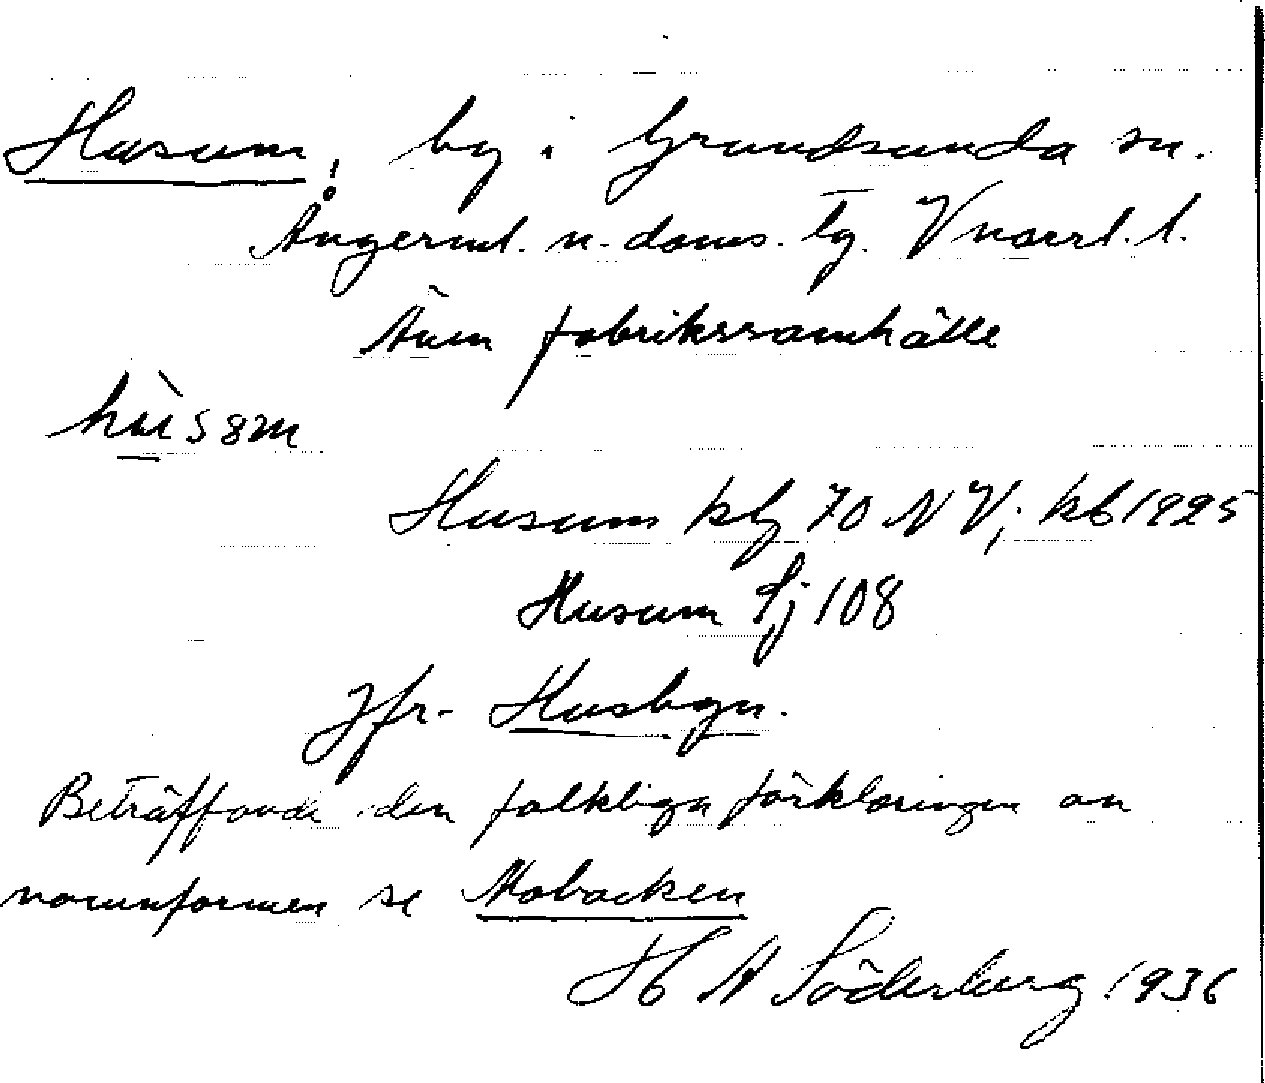 Husum, by i Grundsunda sn.
Ångerml. n. doms. tg. Vnorrl. l.
Även fabrikssamhälle
hùssm
Husum kbg 70 NV; kb 1925
Husum Sj 108
Jfr. Husbyn.
Beträffande den folkliga förklaringen av
namnformen se Mobacken
H A Söderberg 1936